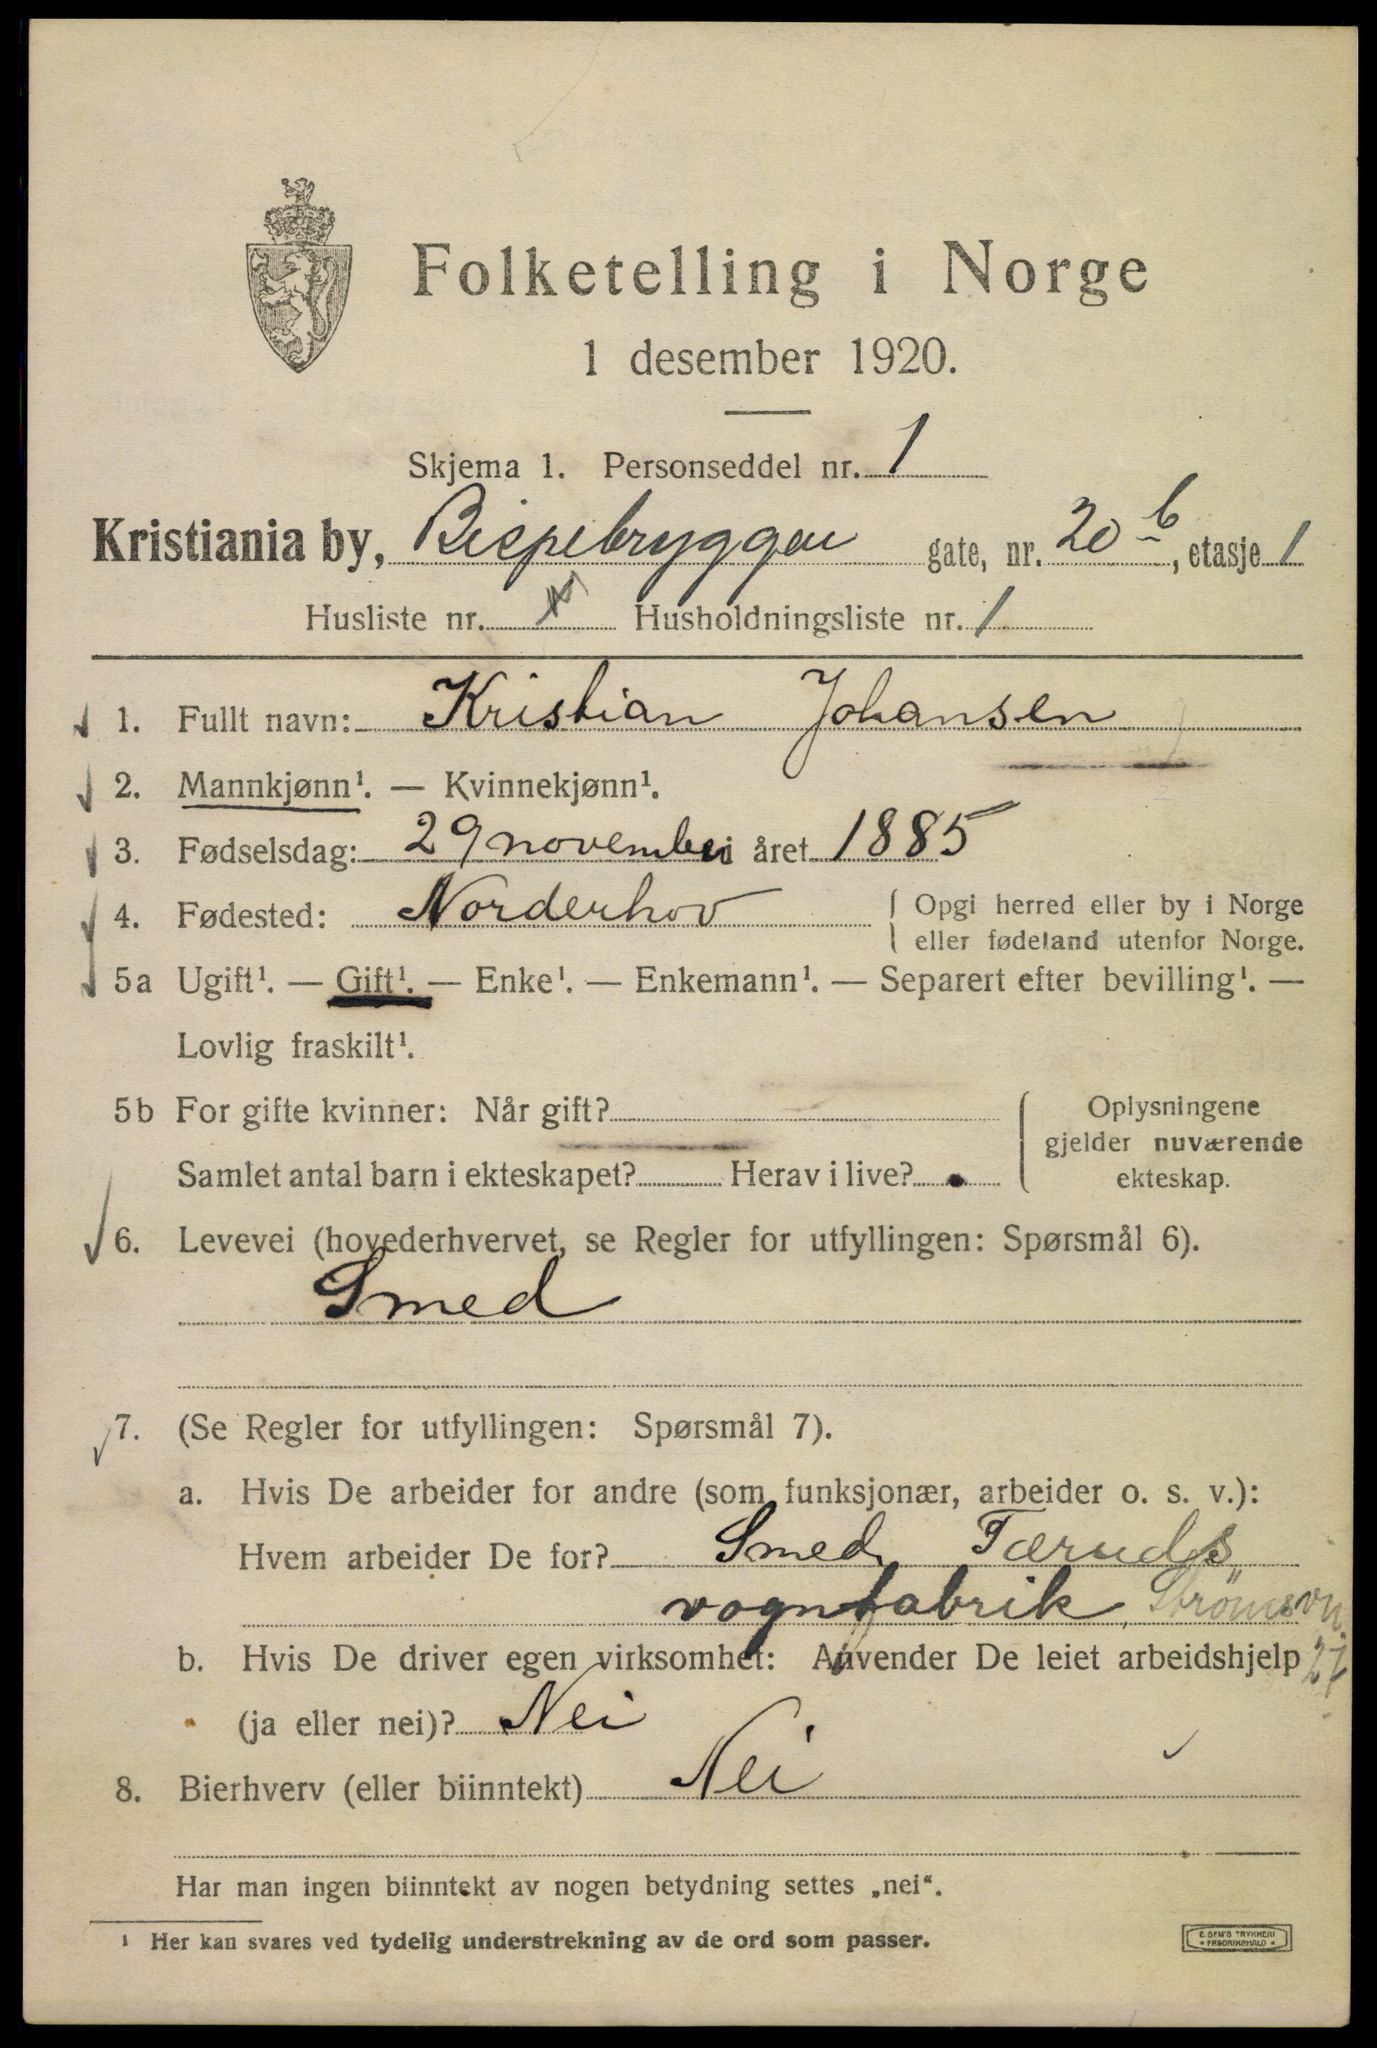 Folketelling i Norge
1 desember 1920.
Skjema 1. Personseddel nr. 1
Kristiania by, Bispebryggen gate, nr. 20 b, etasje 1
Husliste nr. Husholdningsliste nr. 1
1. Fullt navn: Kristian Johansen
2. Mannkjønn¹. — Kvinnekjønn¹.
3. Fødselsdag: 29 november året 1885
4. Fødested: Norderhov { Opgi herred eller by i Norge
eller fødeland utenfor Norge.
5a Ugift¹. — Gift¹. — Enke¹. — Enkemann¹. — Separert efter bevilling¹. —
Lovlig fraskilt¹.
5b For gifte kvinner: Når gift?
Samlet antal barn i ekteskapet? Herav i live?
Oplysningene
gjelder nuværende
ekteskap.
6. Levevei (hovederhvervet, se Regler for utfyllingen: Spørsmål 6).
Smed
7. (Se Regler for utfyllingen: Spørsmål 7).
a. Hvis De arbeider for andre (som funksjonær, arbeider o. s. v.):
Hvem arbeider De for? Smed, Færuds
vognfabrik, Strömsvn.
27
b. Hvis De driver egen virksomhet: Anvender De leiet arbeidshjelp
(ja eller nei)? Nei
8. Bierhverv (eller biinntekt) Nei
Har man ingen biinntekt av nogen betydning settes „nei“.
¹ Her kan svares ved tydelig understrekning av de ord som passer.
E. SEM'S TRYKKERI
FREDRIKSHALD